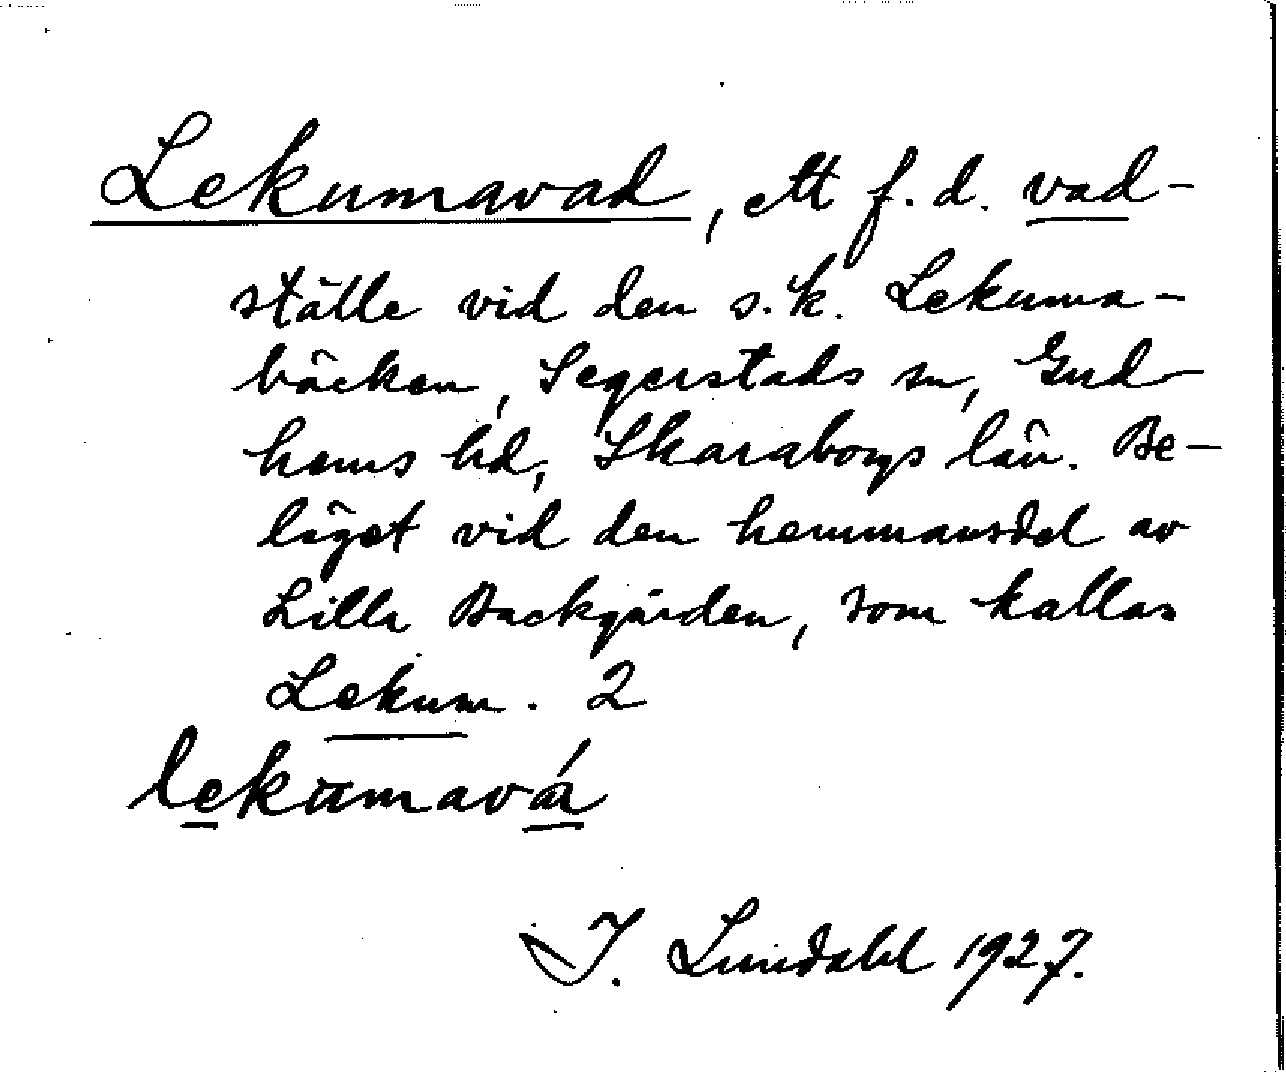 Lekumavad, ett f. d. vad-
ställe vid den s. k. Lekuma-
bäcken, Segerstads sn, Gud-
hems hd, Skaraborgs län. Be-
läget vid den hemmansdel av
Lilla Backgården, som kallas
Lekum. 2
lekumavá
I. Lundahl 1927.